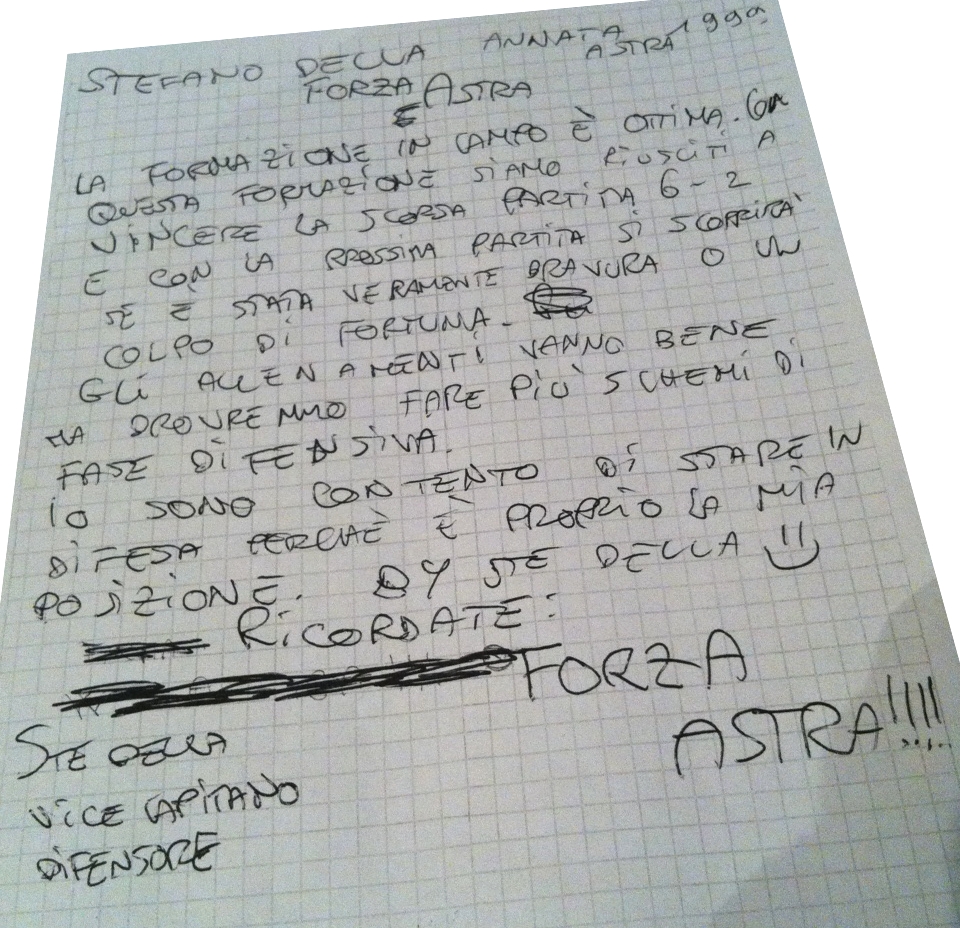 STEFANO DELLA ANNATA 1999
ASTRA
FORZA ASTRA
E
LA FORMAZIONE IN CAMPO È OTTIMA. CON
QUESTA FORMAZIONE SIAMO RIUSCITI A
VINCERE LA SCORSA PARTITA 6-2
E CON LA PROSSIMA PARTITA SI SCOPRIRÀ
SE È STATA VERAMENTE BRAVURA O UN
COLPO DI FORTUNA.
GLI ALLENAMENTI VANNO BENE
MA DROVREMMO FARE PIÙ SCHEMI DI
FASE DIFENSIVA.
IO SONO CONTENTO DI STARE IN
DIFESA PERCHÈ È PROPRIO LA MIA
POSIZIONE. BY STE DELLA
RICORDATE:
FORZA
ASTRA!!!!
STE DELLA
VICE CAPITANO
DIFENSORE